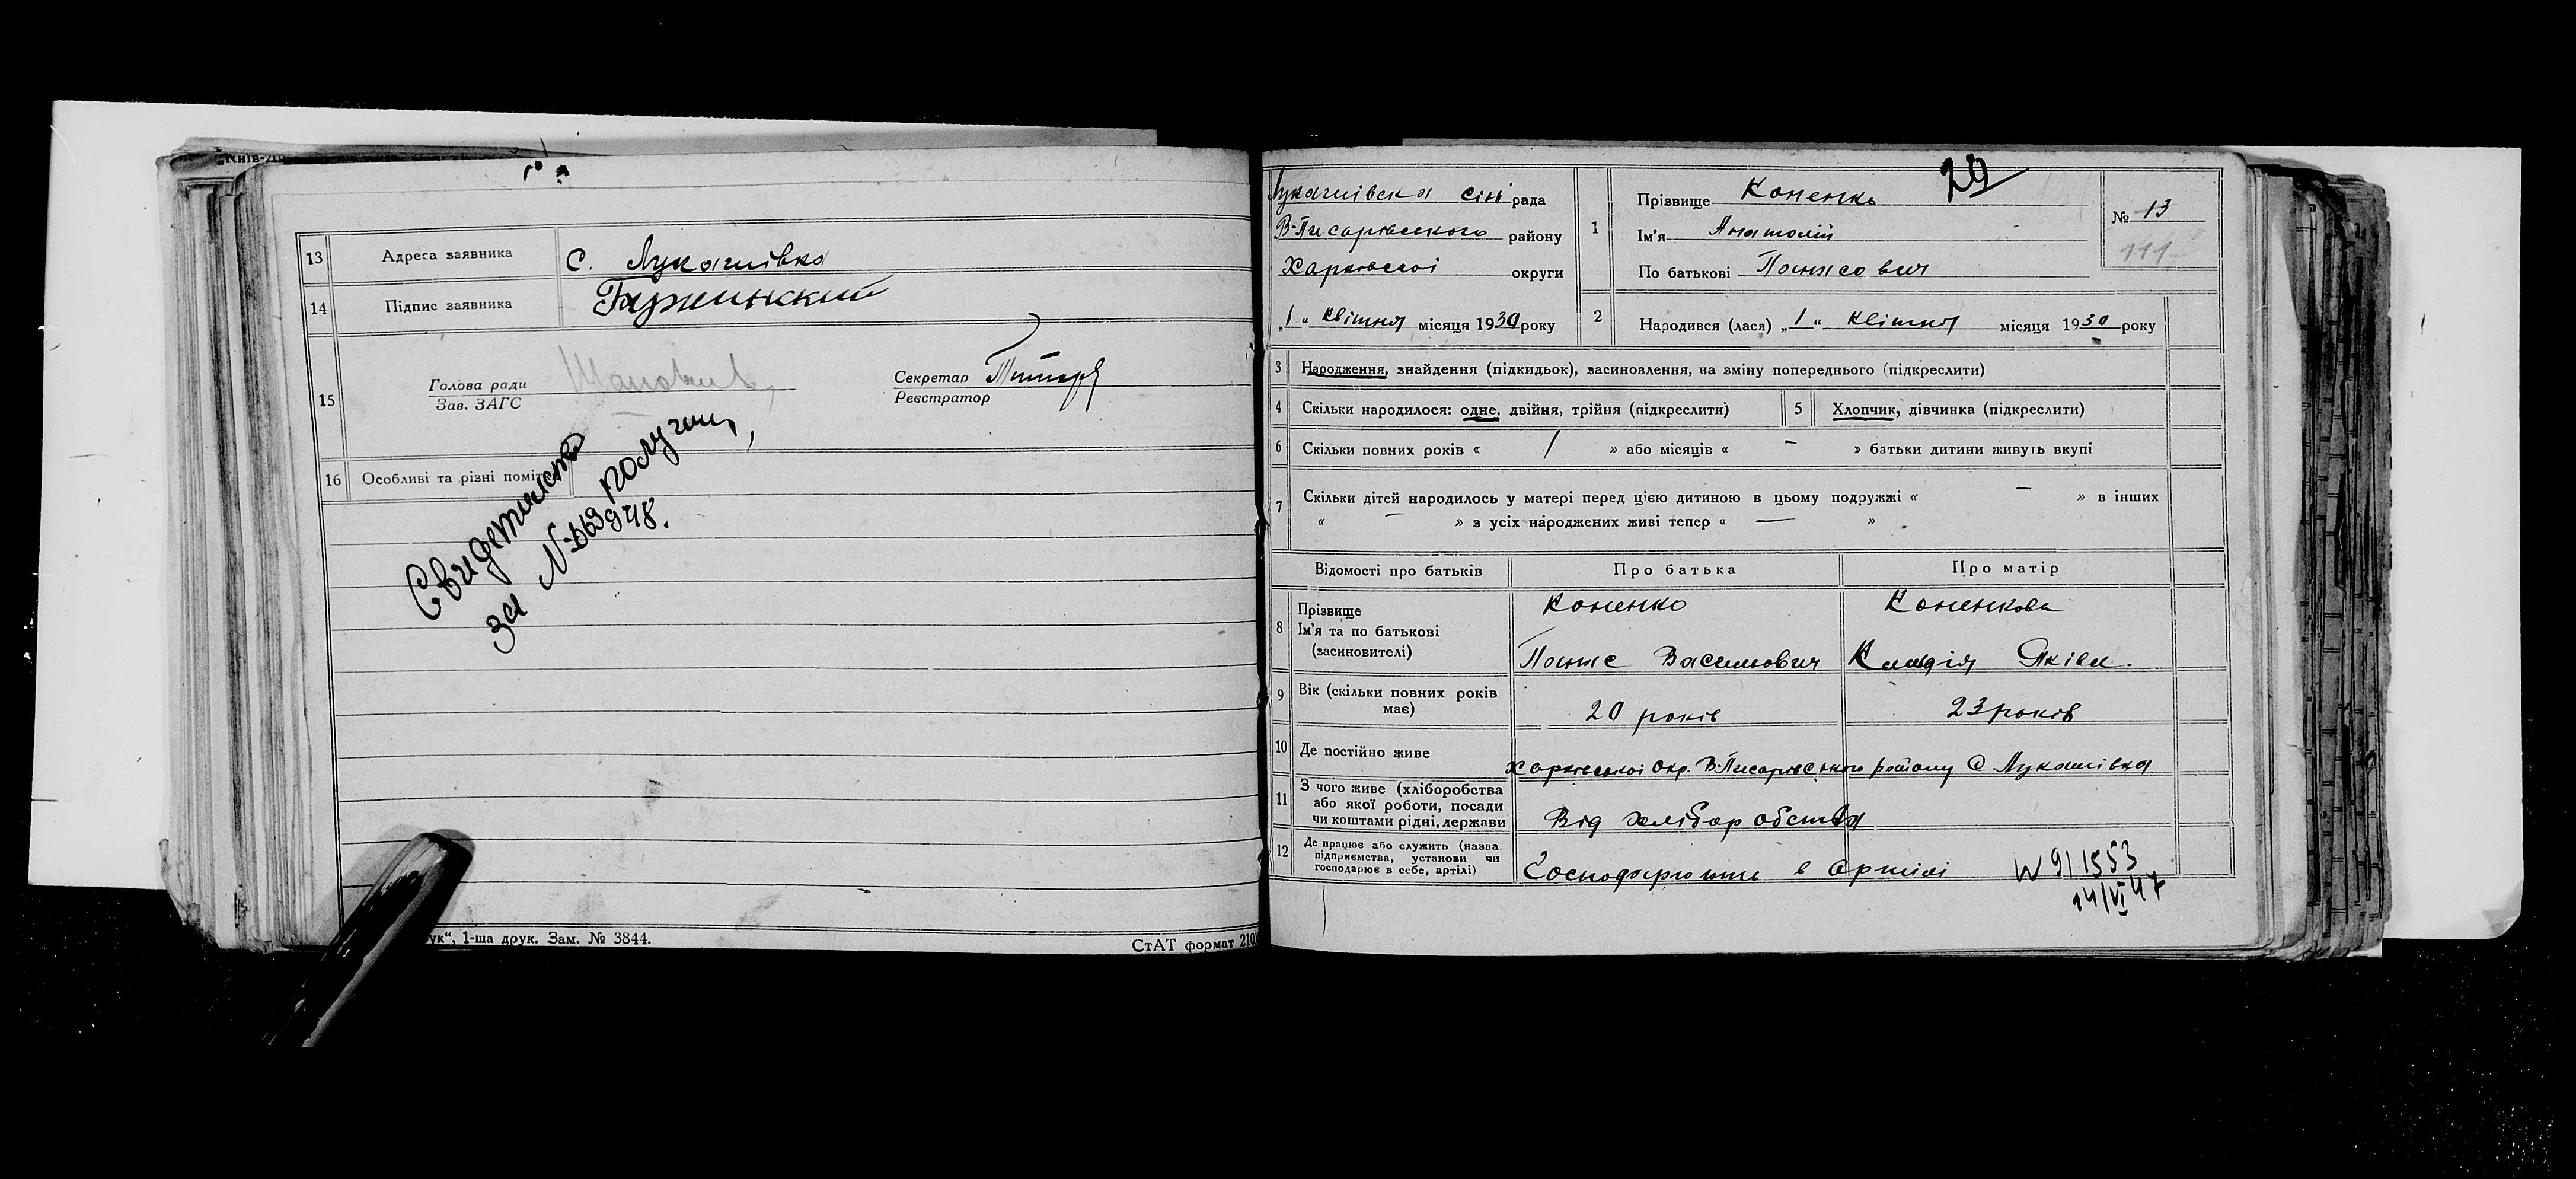 13 Адреса заявника с. Лукашівка
14 Підпис заявника
15 Голова ради
Зав. ЗАГС
Секретар
Реєстратор
16 Особливі та різні поміт
Свидетельство
получил
за №
ук“, 1-ша друк. Зам. № 3844.
СтАТ формат 210
29
Лукашівська сіль рада
В-Писарівського району
Харківської округи
„1“ квітня місяця 1930 року
1 Прізвище Коненко
Ім'я Анатолій
По батькові
№ 13
111
2 Народився (лася) „1“ квітня місяця 1930 року
3 Народження, знайдення (підкидьок), засиновлення, на зміну попереднього (підкреслити)
4 Скільки народилося: одне, двійня, трійня (підкреслити) 5 Хлопчик, дівчинка (підкреслити)
6 Скільки повних років « 1 » або місяців « – » батьки дитини живуть вкупі
7 Скільки дітей народилось у матері перед цією дитиною в цьому подружжі « – » в інших
« – » з усіх народжених живі тепер « — »
Відомості про батьків Про батька Про матір
8 Прізвище Коненко Коненкова
Ім'я та по батькові
(засиновителі) Васильович Клавдія Яківл.
9 Вік (скільки повних років
має) 20 років 23 років
10 Де постійно живе Харківської Окр. В-Писарівського району С Лукашівка
11 З чого живе (хліборобства
або якої роботи, посади
чи коштами рідні, держави Від хліборобства
12 Де працює або служить (назва
підприємства, установи чи
господарює в себе, артілі) в артілі
№ 911553
14/VI 47